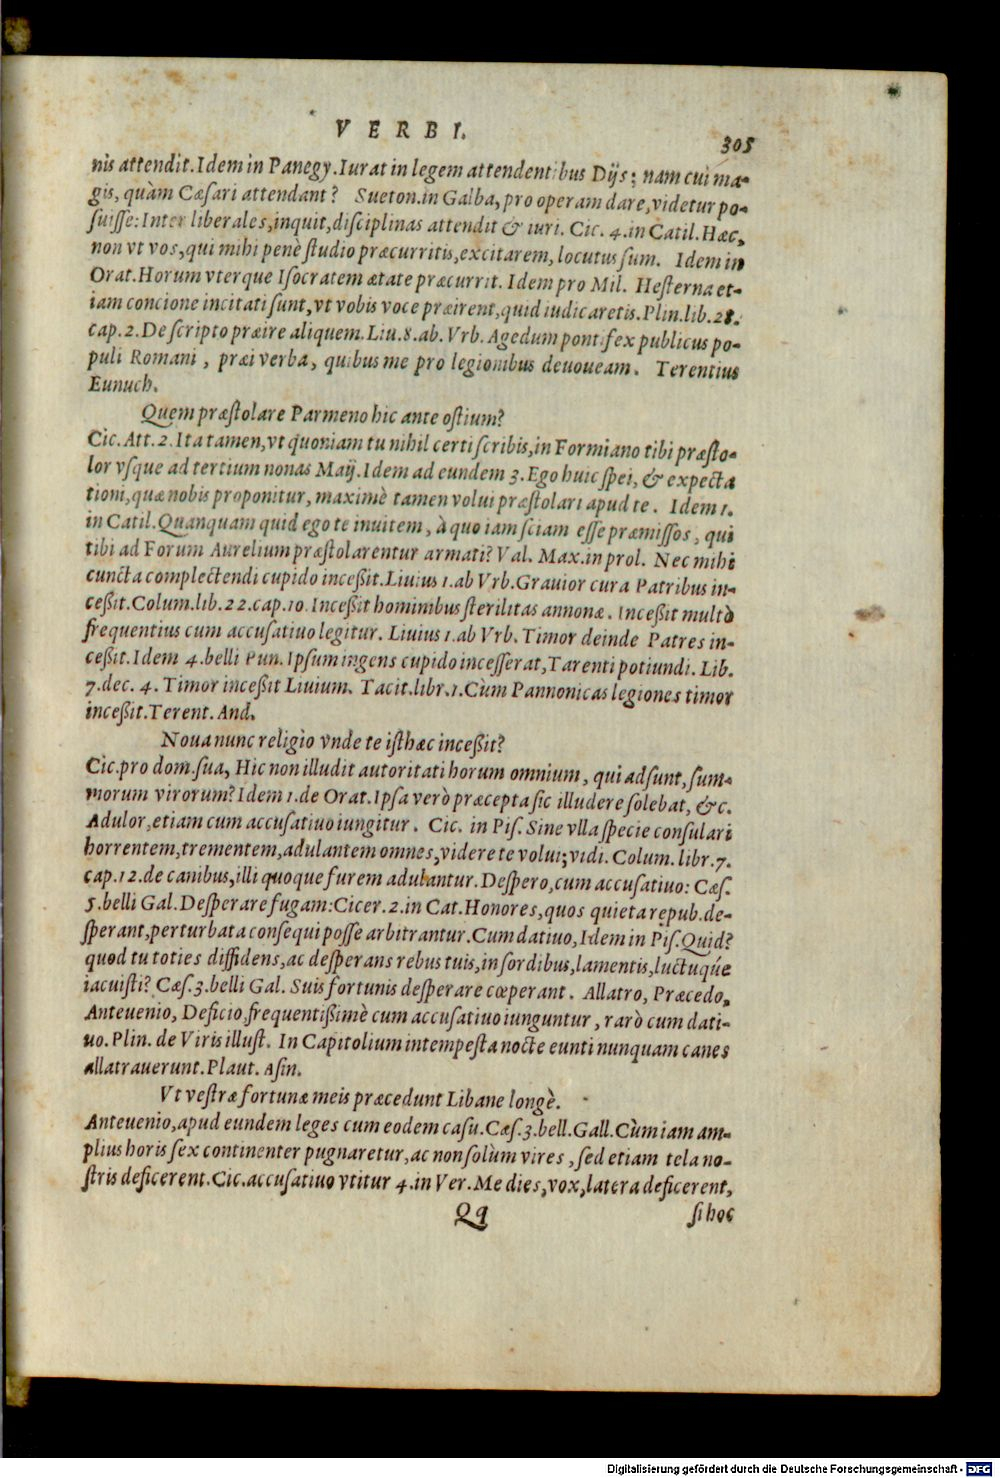 VERBI.
305
nis attendit. Idem in Panegy. Iurat in legem attendentibus Dijs; nam cui ma-
gis, quàm Cæsari attendant? Sueton. in Galba, pro operam dare, videtur po-
suisse: Inter liberales, inquit, disciplinas attendit & iuri. Cic. 4. in Catil. Hæc,
non vt vos, qui mihi penè studio præcurritis, excitarem, locutus sum. Idem in
Orat. Horum vterque Isocratem ætate præcurrit. Idem pro Mil. Hesterna et-
iam concione incitati sunt, vt vobis voce præirent, quid iudicaretis. Plin. lib. 28.
cap. 2. De scripto præire aliquem. Liu. 8. ab. Vrb. Agedum pontifex publicus po-
puli Romani, præi verba, quibus me pro legionibus deuoueam. Terentius
Eunuch.
Quem præstolare Parmeno hic ante ostium?
Cic. Att. 2. Ita tamen, vt quoniam tu nihil certi scribis, in Formiano tibi præsto-
lor vsque ad tertium nonas Maij. Idem ad eundem 3. Ego huic spei, & expecta
tioni, quæ nobis proponitur, maximè tamen volui præstolari apud te. Idem 1.
in Catil. Quanquam quid ego te inuitem, à quo iam sciam esse præmissos, qui
tibi ad Forum Aurelium præstolarentur armati? Val. Max. in prol. Nec mihi
cuncta complectendi cupido inceßit. Liuius 1. ab Vrb. Grauior cura Patribus in-
ceßit. Colum. lib. 22. cap. 10. Inceßit hominibus sterilitas annonæ. Inceßit multò
frequentius cum accusatiuo legitur. Liuius 1. ab Vrb. Timor deinde Patres in-
ceßit. Idem 4. belli Pun. Ipsum ingens cupido incesserat, Tarenti potiundi. Lib.
7. dec. 4. Timor inceßit Liuium. Tacit. libr. 1. Cùm Pannonicas legiones timor
inceßit. Terent. And.
Noua nunc religio vnde te isthæc inceßit?
Cic. pro dom. sua, Hic non illudit autoritati horum omnium, qui adsunt, sum-
morum virorum? Idem 1. de Orat. Ipsa verò præcepta sic illudere solebat, &c.
Adulor, etiam cum accusatiuo iungitur. Cic. in Pis. Sine vlla specie consulari
horrentem, trementem, adulantem omnes, videre te volui; vidi. Colum. libr. 7.
cap. 12. de canibus, illi quoque furem adulantur. Despero, cum accusatiuo: Cæs.
5. belli Gal. Desperare fugam: Cicer. 2. in Cat. Honores, quos quieta repub. de-
sperant, perturbata consequi posse arbitrantur. Cum datiuo, Idem in Pis. Quid?
quod tu toties diffidens, ac desperans rebus tuis, in sordibus, lamentis, luctuq́ue
iacuisti? Cæs. 3. belli Gal. Suis fortunis desperare cœperant. Allatro, Præcedo,
Anteuenio, Deficio, frequentißimè cum accusatiuo iunguntur, rarò cum dati-
uo. Plin. de Viris illust. In Capitolium intempesta nocte eunti nunquam canes
allatrauerunt. Plaut. Asin.
Vt vestræ fortunæ meis præcedunt Libane longè.
Anteuenio, apud eundem leges cum eodem casu. Cæs. 3. bell. Gall. Cùm iam am-
plius horis sex continenter pugnaretur, ac non solùm vires, sed etiam tela no-
stris deficerent. Cic. accusatiuo vtitur 4. in Ver. Me dies, vox, latera deficerent,
Qq
si hoc
Digitalisierung gefördert durch die Deutsche Forschungsgemeinschaft - DFG